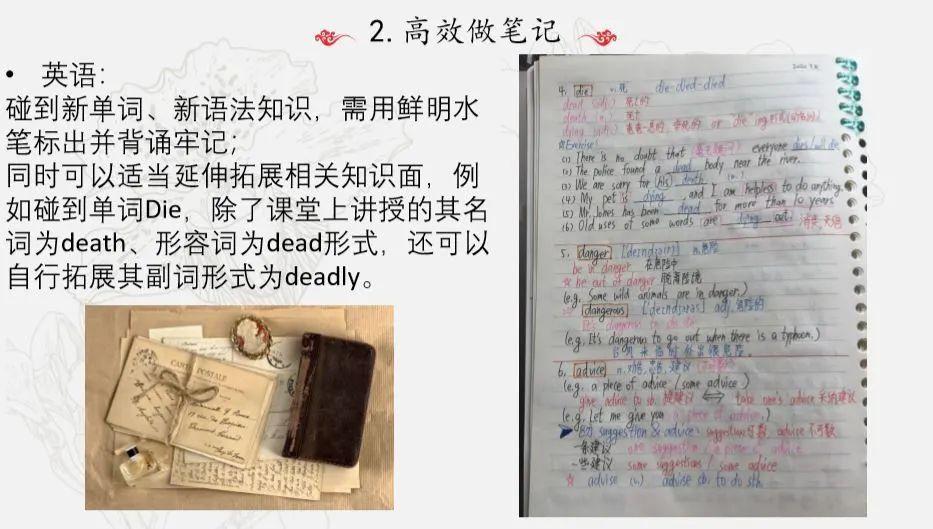 2.高效做笔记
• 英语：
碰到新单词、新语法知识，需用鲜明水
笔标出并背诵牢记；
同时可以适当延伸拓展相关知识面，例
如碰到单词Die，除了课堂上讲授的其名
词为death、形容词为dead形式，还可以
自行拓展其副词形式为deadly。
CARTE POSTALE
4. die v. 死 die-died-died
dead (adj.) 死的
death (n.)
dying (adj.)
(1) There is no doubt that everyone dies/will die
(2) The police found a dead body near the river.
(3) We are sorry for (his) death
(4) My pet is dying and I am helpless to do anything.
(5) Mr. Jones has been dead for more than 10 years
(6) Old uses of some words are dying out
5. danger n.危险
be in danger 在危险中
☆ be out of danger 脱离险境
(e.g. Some wild animals are in danger.)
dangerous adj. 危险的
It's dangerous to do sth
(e.g. It's dangerous to go out when there is a typhoon.)
6. advice n. 建议
(e.g. a piece of advice / some advice)
give advice to sb. 提建议 ⟺ take one's advice 采纳建议
(e.g. Let me give you a piece of advice.)
suggestion & advice: suggestion可数 advice 不可数
一条建议 one suggestion / a piece of advice
一些建议 some suggestions / some advice
☆ advise (v.) advise sb. to do sth.